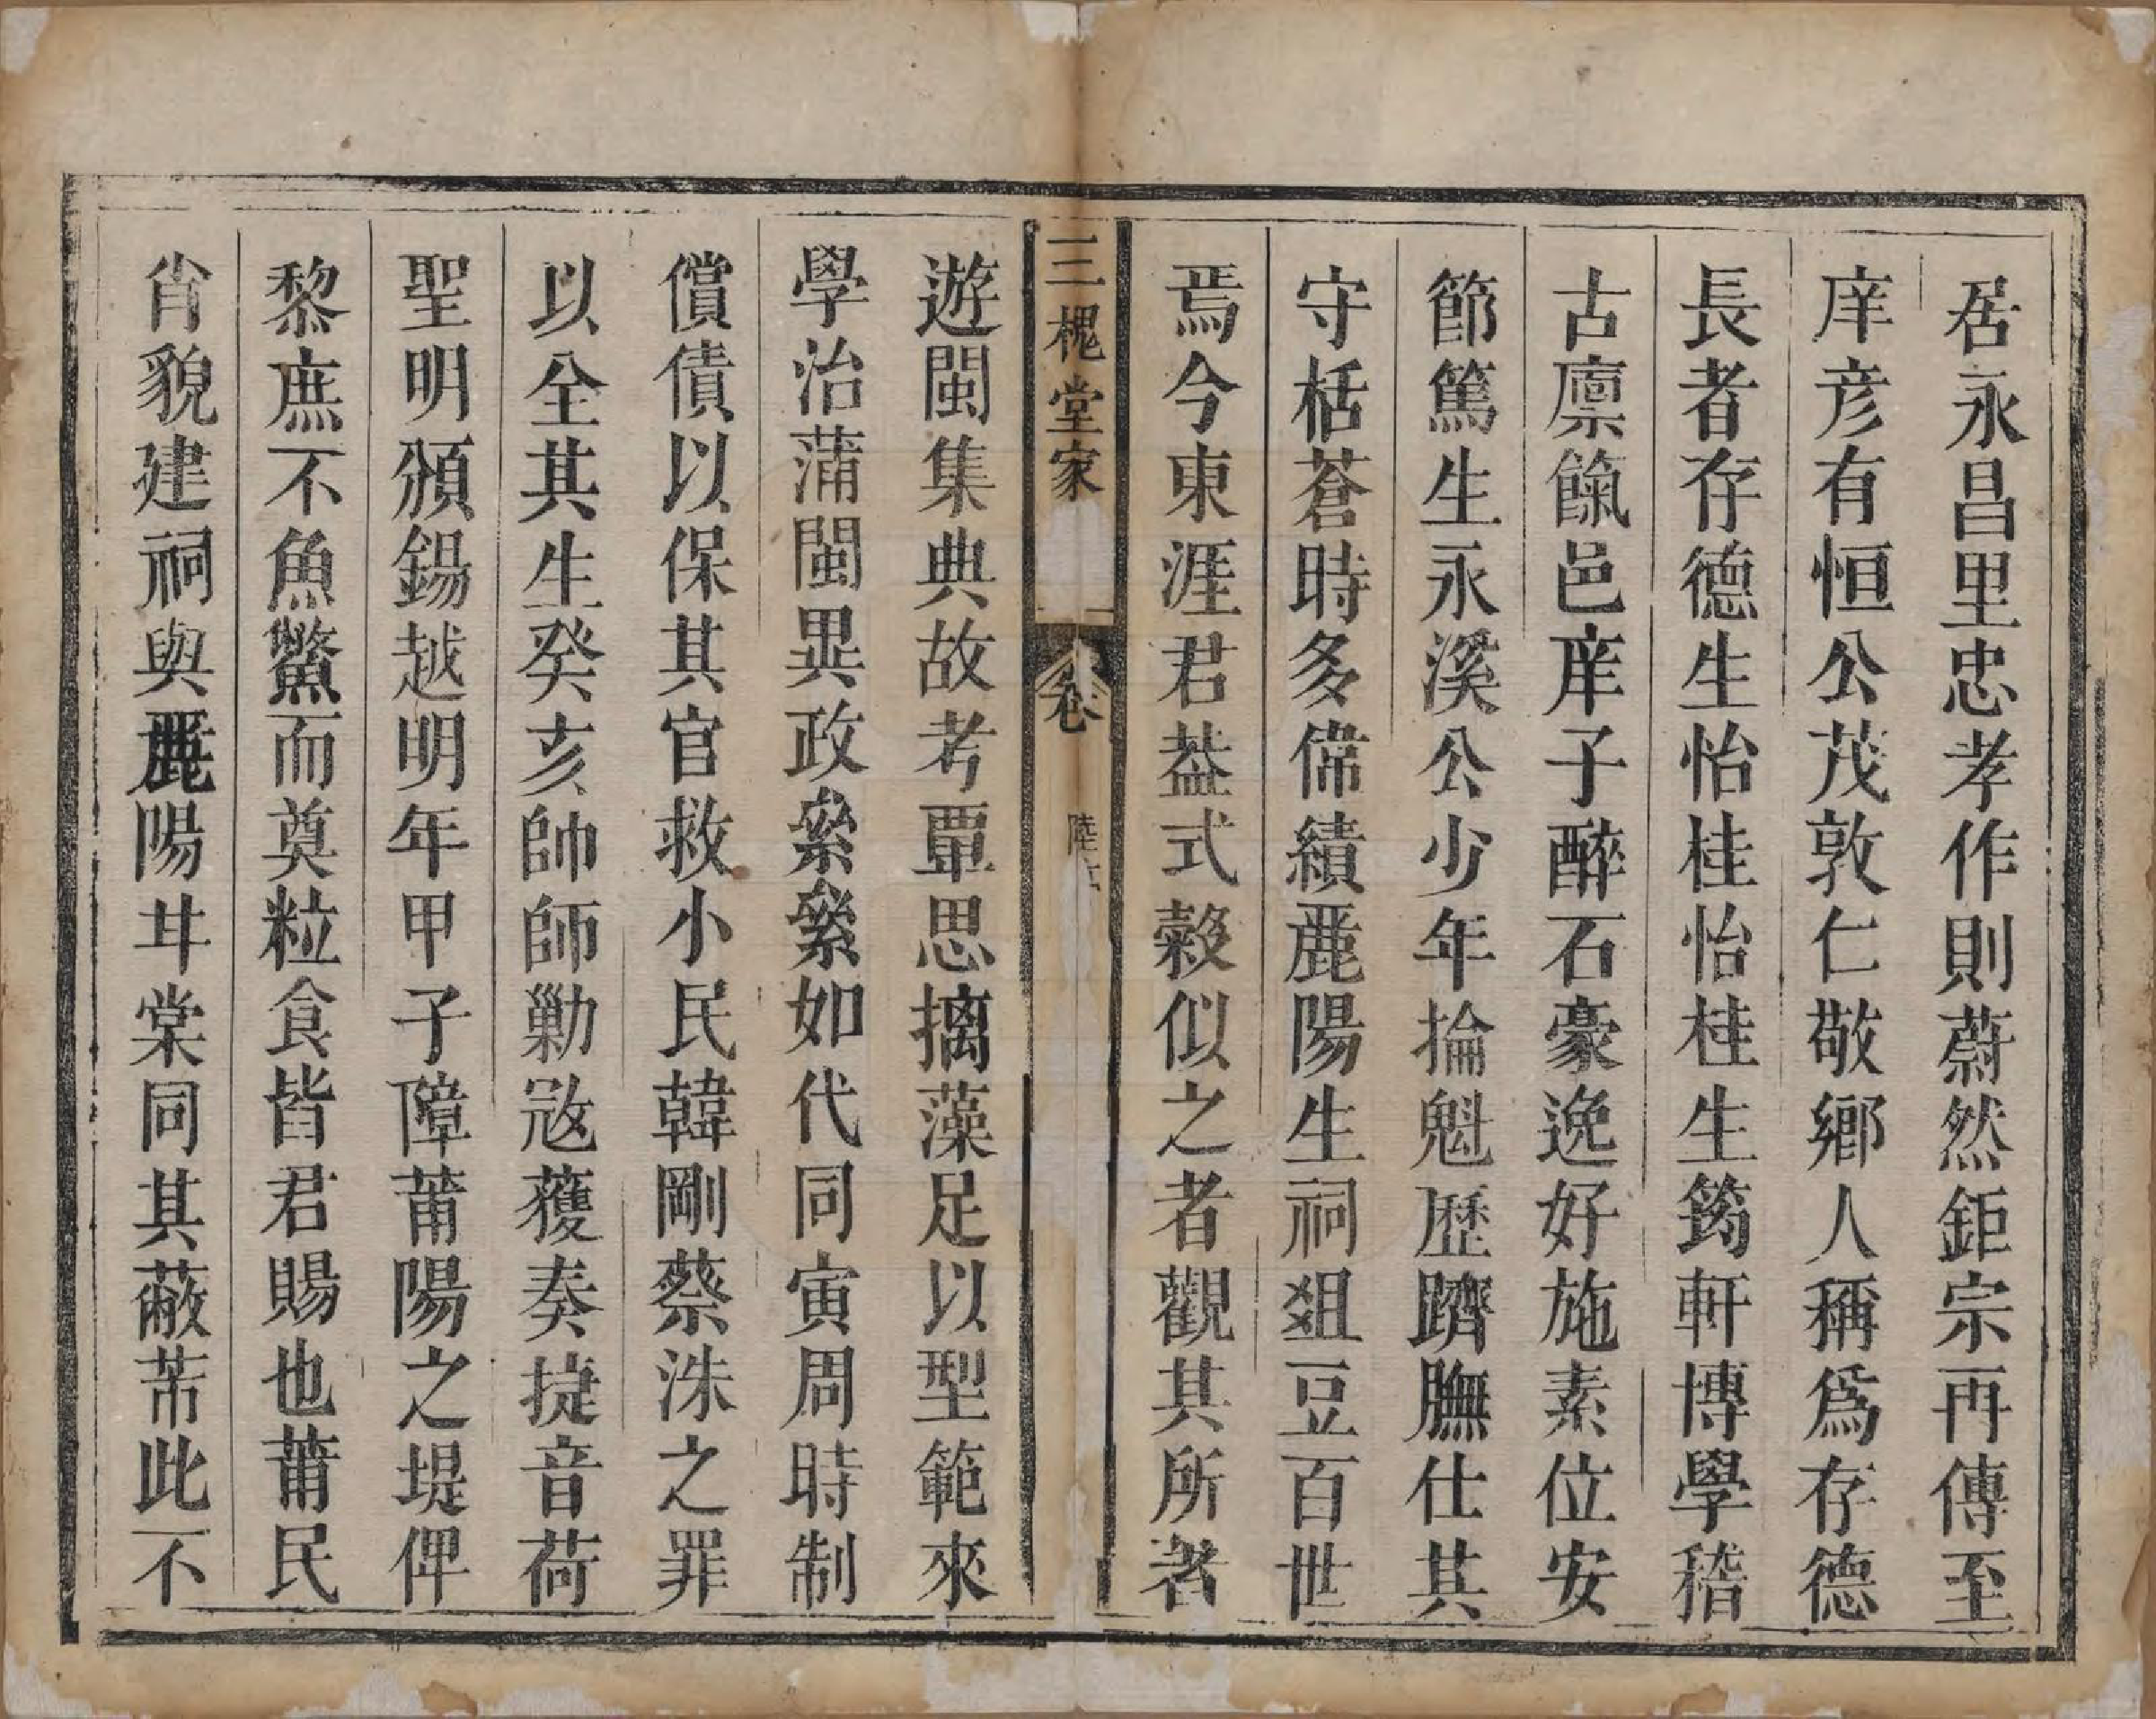 居永昌里忠孝作則蔚然鉅宗再傳至
庠彥有恒公茂敦仁敬鄉人稱爲存德
長者存德生怡桂怡桂生筠軒博學稽
古廪餼邑庠子醉石豪逸好施素位安
節篤生永溪公少年掄魁歷躋膴仕其
守栝蒼時多偉績麗陽生祠俎豆百世
焉今東涯君益式穀似之者觀其所著
三槐堂家
卷
陸
遊閩集典故考覃思摛藻足以型範來
學治蒲閩異政纍纍如代同寅周時制
償債以保其官救小民韓剛蔡洙之罪
以全其生癸亥帥師勦寇獲奏捷音荷
聖明頒錫越明年甲子障莆陽之堤俾
黎庶不魚鱉而奠粒食皆君賜也莆民
肖貌建祠與麗陽甘棠同其蔽芾此不